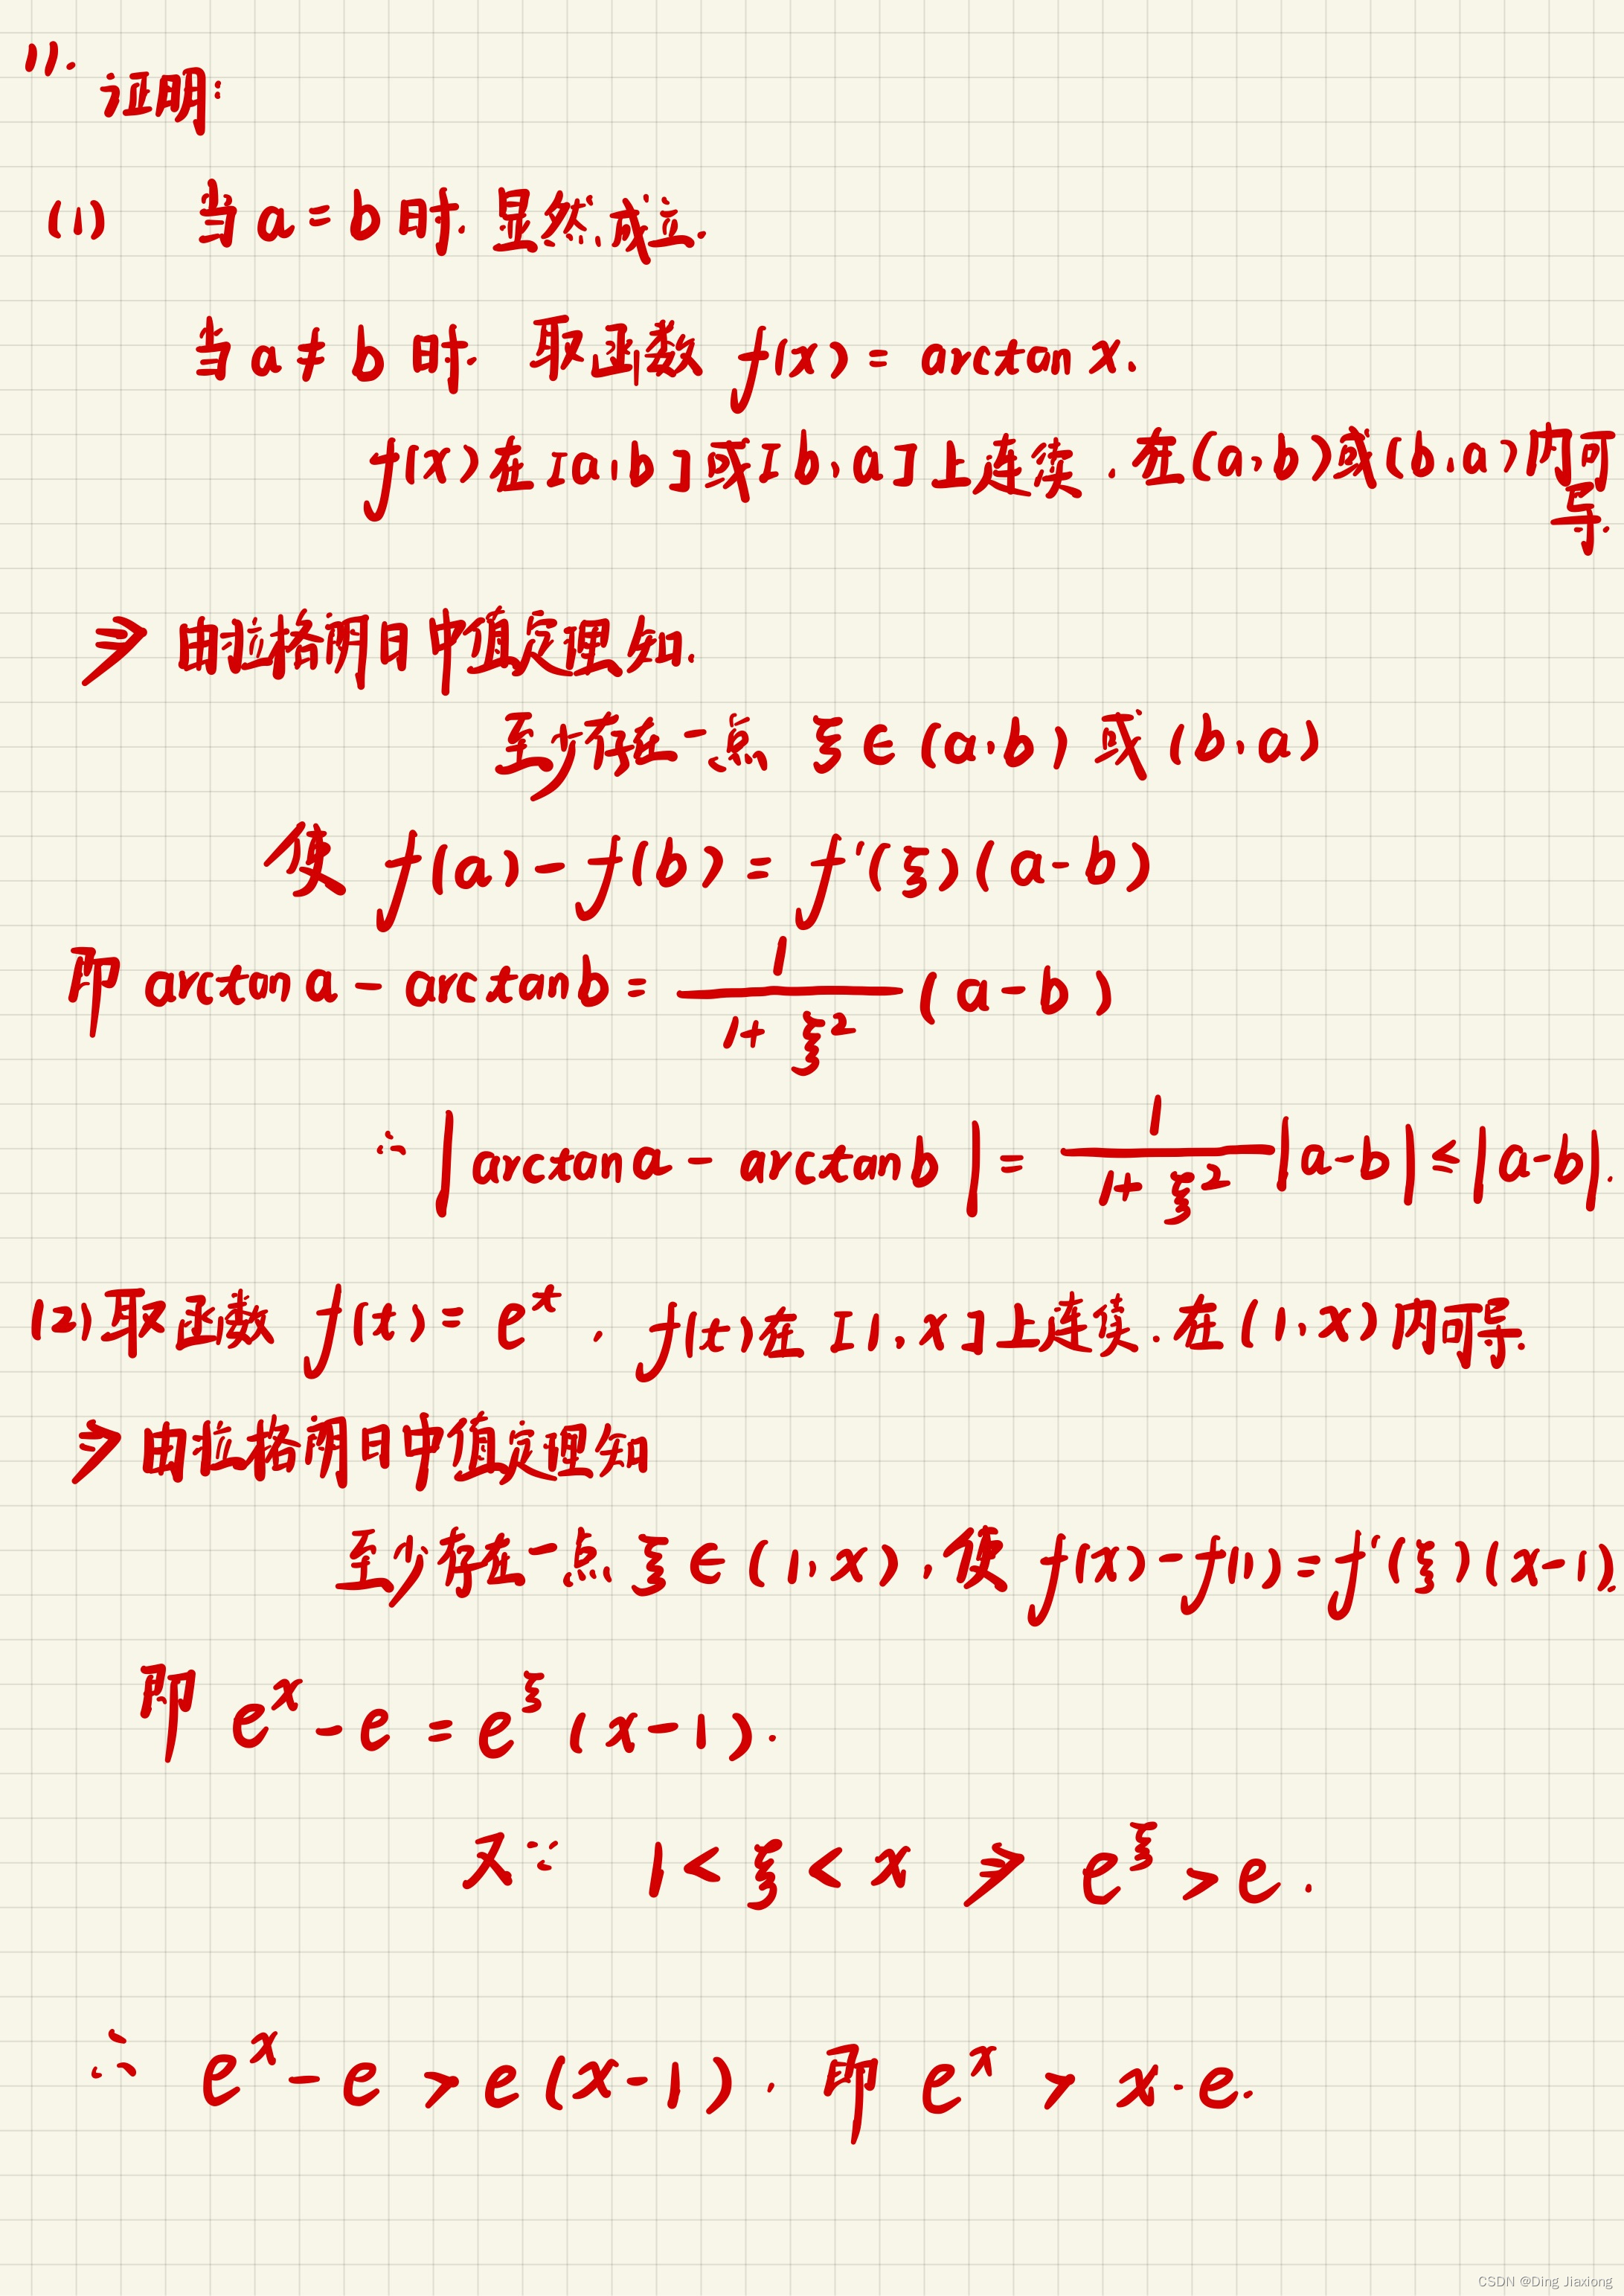 11.
证明:
(1) 当 a = b 时. 显然成立.
当 a ≠ b 时. 取函数 f(x) = arctan x.
f(x) 在 [a,b] 或 [b,a] 上连续. 在 (a,b) 或 (b,a) 内可
导.
⇒ 由拉格朗日中值定理知.
至少存在一点 ξ ∈ (a,b) 或 (b,a)
使 f(a) - f(b) = f'(ξ)(a-b)
即 arctan a - arctan b = 1/(1+ξ²) (a-b)
∴ |arctan a - arctan b| = 1/(1+ξ²) |a-b| ≤ |a-b|.
(2) 取函数 f(t) = e^t, f(t) 在 [1,x] 上连续. 在 (1,x) 内可导.
⇒ 由拉格朗日中值定理知
至少存在一点 ξ ∈ (1,x), 使 f(x) - f(1) = f'(ξ)(x-1).
即 e^x - e = e^ξ (x-1).
又∵ 1 < ξ < x ⇒ e^ξ > e.
∴ e^x - e > e(x-1). 即 e^x > x·e.
CSDN @Ding Jiaxiong